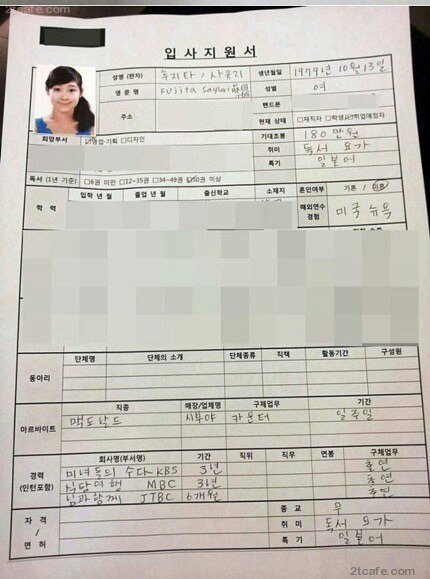 2tcafe.com
입사지원서
성명 (한자) 후지타 / 사유리 생년월일 1979년 10월 13일
영 문 명 Fujita Sayuri 성별 여
주소 핸드폰
현재 상태 □재직자 □학생 □취업예정자
희망부서 영업·기획 □디자인 기대초봉 180 만원
취미 독서 요가
특기 일본어
독서 (1년 기준) □6권 미만 □12~35권 □34~49권 50권 이상
입학 년 월 졸업 년 월 출신학교 소재지 혼인여부 기혼 / 미혼
학 력 해외연수 경험 미국 뉴욕
단체명 단체의 소개 단체종류 직책 활동기간 구성원
동아리
직종 매장/업체명 구체업무 기간
아르바이트 맥도날드 시부야 카운터 일주일
회사명(부서명) 기간 직위 직무 연봉 구체업무
경력 (인턴포함) 미녀들의 수다 KBS 3년 출연
식담여행 MBC 3년 출연
님과함께 JTBC 6개월 출연
자격 / 면허 종 교 무
취 미 독서 요가
특 기 일본어
2tcafe.com